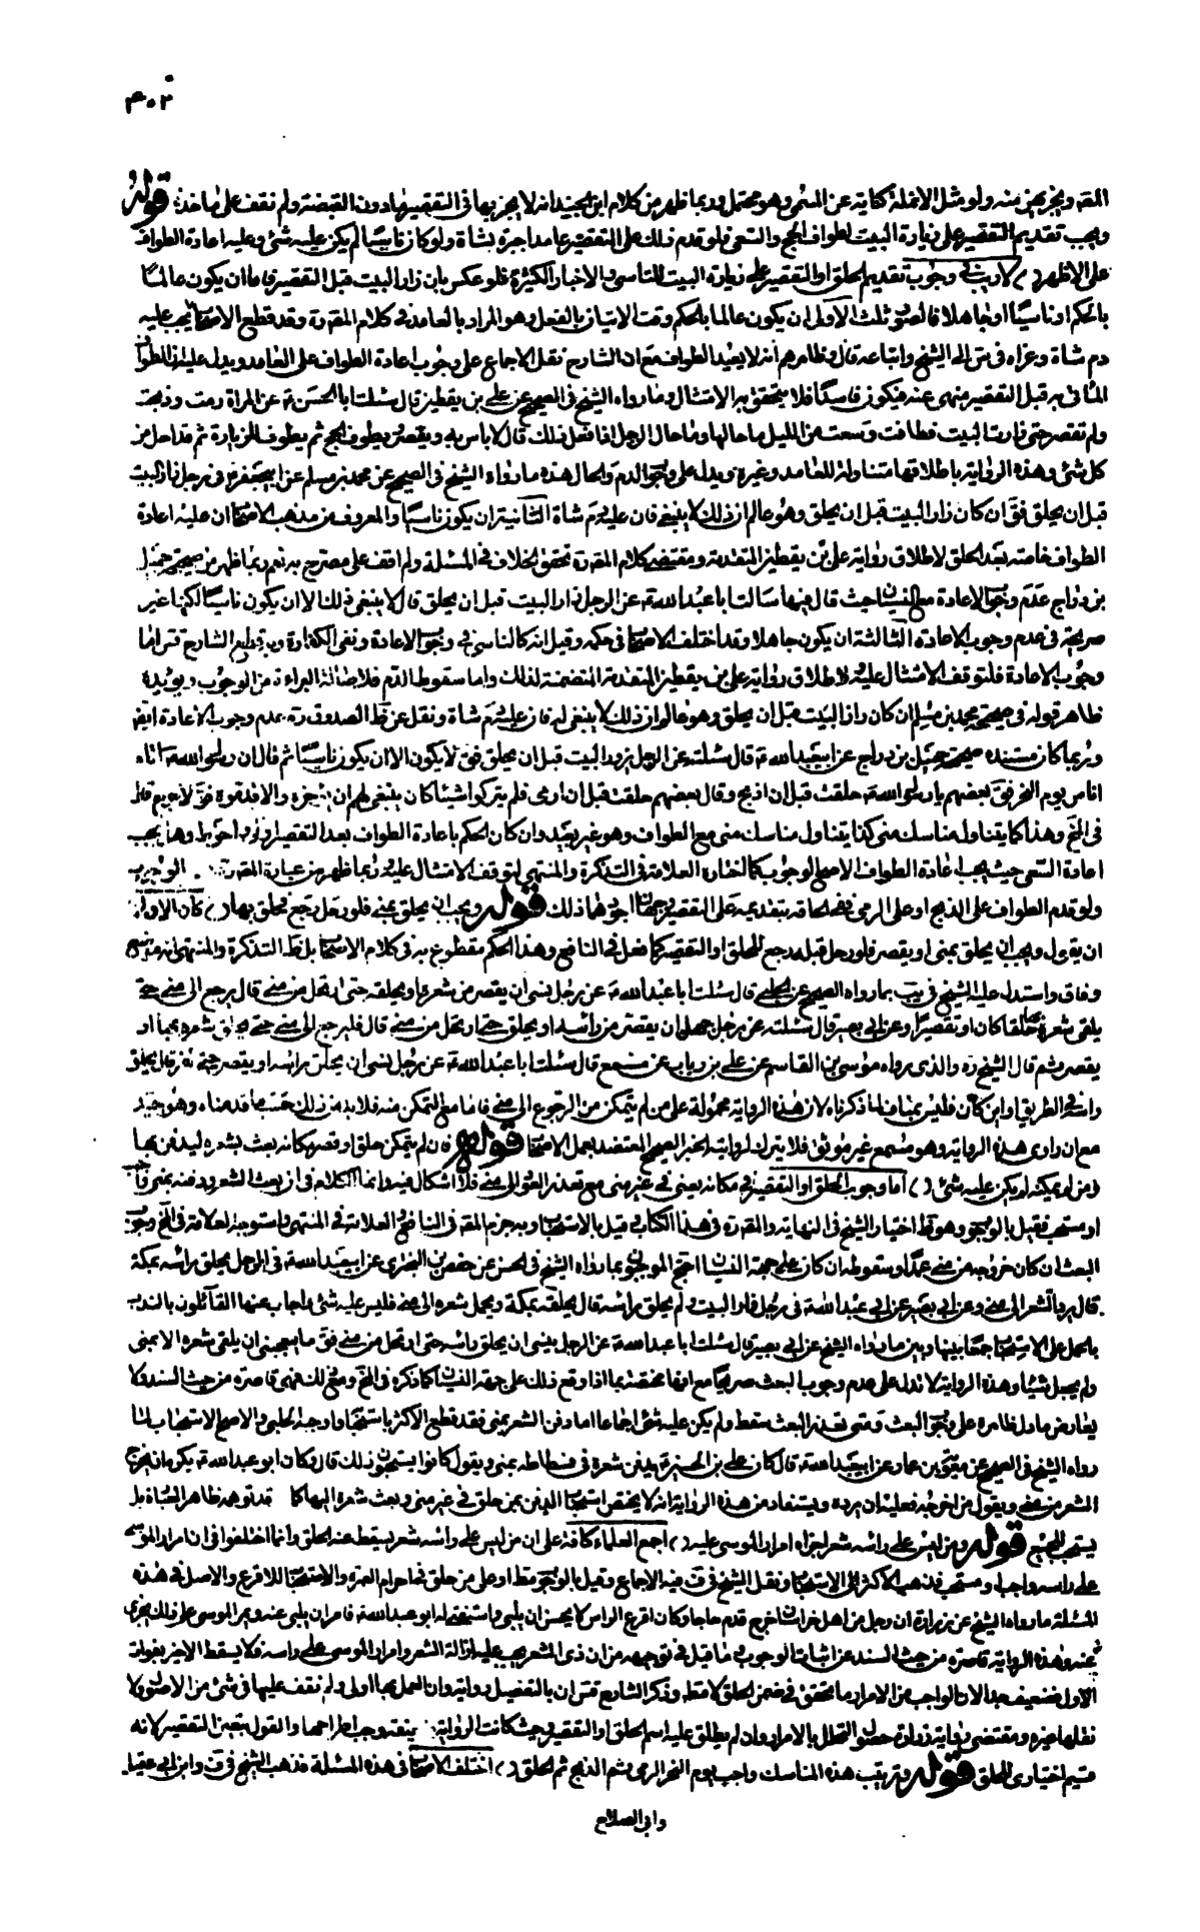 ٤٠٢
المقه ويجزيهن منه ولو مثل الانملة كناية عن المسمى وهو محتمل وربما ظهر من كلام ابن الجنيد انه لا يجزيها في التقصير مادون القبضة ولم نقف على ماخذه قوله
ويجب تقديم التقصير على زيارة البيت لطواف الحج والسعي فلو قدم ذلك على التقصير عامدا جبره بشاة ولو كان ناسيا لم يكن عليه شئ وعليه اعادة الطواف
على الاظهر لا ريب في وجوب تقديم الحلق او التقصير على زيارة البيت للتاسي والاخبار الكثيرة فلو عكس بان زار البيت قبل التقصير فاما ان يكون عالما
بالحكم او ناسيا او جاهلا فالصور ثلث الاولى ان يكون عالما بالحكم وقت الاتيان بالفعل وهو المراد بالعامد في كلام المقرة وقد قطع الاصحاب يجب عليه
دم شاة وعزاه في س الى الشيخ واتباعه قال وظاهرهم انه لا يعيد الطواف مع ان الشارح نقل الاجماع على وجوب اعادة الطواف على العامد ويدل عليه ان الطواف
الماتي به قبل التقصير منهى عنه فيكون فاسدا فلا يتحقق به الامتثال وما رواه الشيخ في الصحيح عن علي بن يقطين قال سئلت ابا الحسن ع عن المراة رمت وذبحت
ولم تقصر حتى زارت البيت فطافت وسعت من الليل ما حالها وما حال الرجل اذا فعل ذلك قال لا باس به ويقصر ويطوف للحج ثم يطوف للزيارة ثم قد احل من
كل شئ وهذه الرواية باطلاقها متناولة للعامد وغيره ويدل على وجوب الدم والحال هذه ما رواه الشيخ في الصحيح عن محمد بن مسلم عن ابي جعفر ع في رجل زار البيت
قبل ان يحلق فق ان كان زار البيت قبل ان يحلق وهو عالم ان ذلك لا ينبغي فان عليه دم شاة الثانية ان يكون ناسيا والمعروف من مذهب الاصحاب ان عليه اعادة
الطواف خاصة بعد الحلق لاطلاق رواية علي بن يقطين المتقدمة ومقتضى كلام المقرة تحقق الخلاف في المسئلة ولم اقف على مصرح به نعم ربما ظهر من صحيحة جميل
بن دراج عدم وجوب الاعادة مع النسيان حيث قال فيها سالت ابا عبد الله ع عن الرجل زار البيت قبل ان يحلق قال لا ينبغي ذلك الا ان يكون ناسيا لكنها غير
صريحة في عدم وجوب الاعادة الثالثة ان يكون جاهلا وقد اختلف الاصحاب في حكمه وقيل انه كالناسي في وجوب الاعادة ونفى الكفارة وبه قطع الشارح قس اما
وجوب الاعادة فلتوقف الامتثال عليه ولاطلاق رواية علي بن يقطين المتقدمة المتضمنة لذلك واما سقوط الدم فلاصالة البراءة من الوجوب ويؤيده
ظاهر قوله في صحيحة محمد بن مسلم ان كان زار البيت قبل ان يحلق وهو عالم ان ذلك لا ينبغي له فان عليه دم شاة ونقل عن ظ الصدوق ره عدم وجوب الاعادة ايضا
وربما كان مستنده صحيحة جميل بن دراج عن ابي عبد الله ع قال سئلته عن الرجل يزور البيت قبل ان يحلق فق لا يكون الا ان يكون ناسيا ثم قال ان رسول الله ص اتاه
اناس يوم النحر فق بعضهم يا رسول الله حلقت قبل ان اذبح وقال بعضهم حلقت قبل ان ارمي فلم يتركوا شيئا كان ينبغي لهم ان يؤخروه الا قدموه فق لا حرج قال
في المخ وهذا كما يتناول مناسك منى كذا يتناول مناسك منى مع الطواف وهو غير بعيد وان كان الحكم باعادة الطواف بعد التقصير اولى واحوط وهل يجب
اعادة السعي حيث يجب اعادة الطواف الاصح الوجوب كما اختاره العلامة في التذكرة والمنتهى لتوقف الامتثال عليه وربما ظهر من عبارة المقرة الوجوب
ولو قدم الطواف على الذبح او على الرمي ففي الحاقه بتقديمه على التقصير وجهان اجودهما ذلك قوله ويجب ان يحلق بمنى فلو رحل رجع فحلق بها كان الاولى
ان يقول ويجب ان يحلق بمنى او يقصر فلو رحل قبله رجع للحلق او التقصير كما فعل في النافع وهذا الحكم مقطوع به في كلام الاصحاب بل ظ التذكرة والمنتهى انه موضع
وفاق واستدل عليه الشيخ في يب بما رواه الصحيح عن الحلبي قال سئلت ابا عبد الله ع عن رجل نسي ان يقصر من شعره او يحلقه حتى ارتحل من منى قال يرجع الى منى حتى
يلقى شعره بها حلقا كان او تقصيرا وعن ابي بصير قال سئلته عن رجل جهل ان يقصر من راسه او يحلق حتى ارتحل من منى قال فليرجع الى منى حتى يحلق شعره بها او
يقصر وثم قال الشيخ ره والذي رواه موسى بن القاسم عن علي بن رياب عن مسمع قال سئلت ابا عبد الله ع عن رجل نسي ان يحلق راسه او يقصر حتى نفر قال يحلق
راسه في الطريق او اين كان فليس بمناف لما ذكرناه لان هذه الرواية محمولة على من لم يتمكن من الرجوع الى منى فاما مع التمكن منه فلا بد من ذلك حسب ما قدمناه وهو جيد
مع ان راوي هذه الرواية وهو مسمع غير موثق فلا يترك لروايته الخبر الصحيح المعتضد بعمل الاصحاب قوله فان لم يتمكن حلق او قصر مكانه بعث بشعره ليدفن بها
ومن لم يمكنه لم يكن عليه شئ اما وجوب الحلق او التقصير في مكانه يعني في غير منى مع تعذر العود الى منى فلا اشكال فيه وانما الكلام في ان بعث الشعر ودفنه بمنى واجب
او مستحب فقيل بالوجوب وهو ظ اختيار الشيخ في النهاية والمقرة في هذا الكتاب وقيل بالاستحباب وبه جزم المقه في النافع والعلامة في المنتهى واستوجه العلامة في المخ وجوب
البعث ان كان خروجه من منى عمدا وسقوطه ان كان على جهة النسيان احتج الموجبون بما رواه الشيخ في الحسن عن حفص بن البختري عن ابي عبد الله ع في الرجل يحلق راسه بمكة
قال يرد الشعر الى منى وعن ابي بصير عن ابي عبد الله ع في رجل زار البيت ولم يحلق راسه قال يحلقه بمكة ويحمل شعره الى منى فليس عليه شئ واجاب عنها القائلون بالندب
بالحمل على الاستحباب جمعا بينها وبين ما رواه الشيخ عن ابي بصير قال سئلت ابا عبد الله ع عن الرجل ينسى ان يحلق راسه حتى ارتحل من منى فق ما يعجبني ان يلقى شعره الا بمنى
ولم يجعل شيئا وهذه الرواية لا تدل على عدم وجوب البعث صريحا مع انها مختصة بما اذا وقع ذلك على جهة النسيان كما ذكره في المخ ومع ذلك فهي قاصرة من حيث السند فلا
يعارض ما دل ظاهره على وجوب البعث ومتى تعذر البعث سقط ولم يكن عليه شئ اجماعا اما دفن الشعر بمنى فقد قطع الاكثر باستحبابه واوجبه الحلبي والاصح الاستحباب لما
رواه الشيخ في الصحيح عن معوية بن عمار عن ابي عبد الله ع قال كان علي بن الحسين ع يدفن شعره في فسطاطه بمنى ويقول كانوا يستحبون ذلك قال وكان ابو عبد الله ع يكره ان يخرج
الشعر من منى ويقول من اخرجه فعليه ان يرده ويستفاد من هذه الرواية انه لا يختص استحباب الدفن بمن حلق في غير منى وبعث شعره اليها كما قد توهمه ظاهر العبارة بل
يستحب للجميع قوله ومن ليس على راسه شعر اجزاه امرار الموسى عليه اجمع العلماء كافة على ان من ليس على راسه شعر يسقط عنه الحلق وانما اختلفوا في ان امرار الموسى
على راسه واجب او مستحب فذهب الاكثر الى الاستحباب ونقل الشيخ في ف فيه الاجماع وقيل بالوجوب مطلقا او على من حلق في احرام العمرة والاستحباب للاقرع والاصل في هذه
المسئلة ما رواه الشيخ عن زرارة ان رجلا من اهل خراسان خرج قدم حاجا وكان اقرع الراس لا يحسن ان يلبي واستفتى له ابو عبد الله ع فامر ان يلبى عنه ويمر الموسى على راسه فان ذلك يجزي
عنه وهذه الرواية قاصرة من حيث السند عن اثبات الوجوب وما قيل في توجيهه من ان ذي الشعر يجب عليه ازالة الشعر وامرار الموسى على راسه فلا يسقط الاخير بفوات
الاول فضعيف جدا لان الواجب من الامرار ما تحقق في ضمن الحلق لا مطلقا وذكر الشارح قس ان بالتفصيل رواية وان العمل بها اولى ولم نقف عليها في شئ من الاصول ولا
نقلها غيره ومقتضى رواية زرارة حصول التحلل بالامرار وان لم يطلق عليه اسم الحلق او التقصير وحيث كانت الرواية ضعيفة وجب اطراحها والقول بتعين التقصير لانه
قسيم اختياري للحلق قوله وترتيب هذه المناسك واجب يوم النحر الرمي ثم الذبح ثم الحلق اختلف الاصحاب في هذه المسئلة فذهب الشيخ في ف وابن ابي عقيل
وابي الصلاح